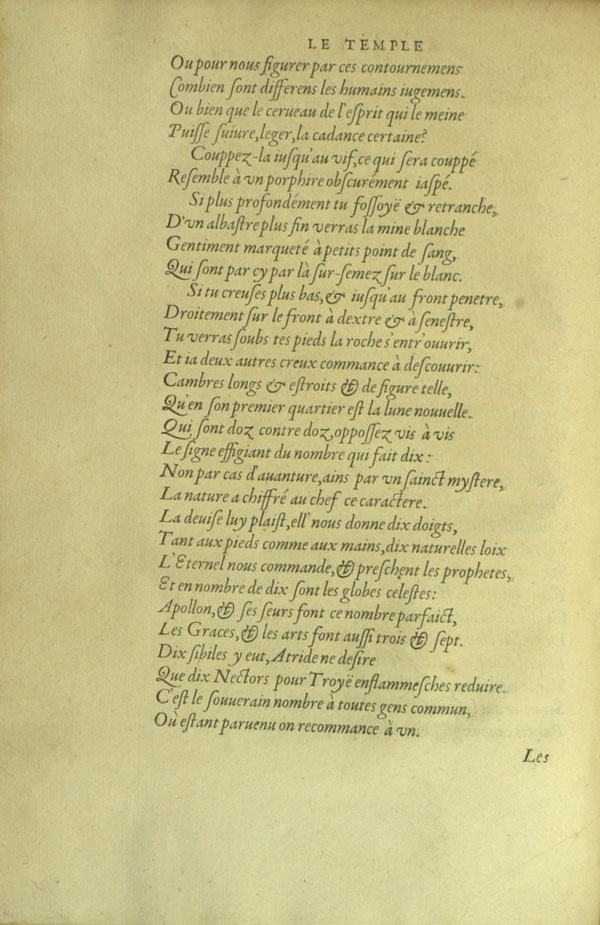 LE TEMPLE
Ou pour nous figurer par ces contournemens
Combien ſont differens les humains iugemens.
Ou bien que le cerueau de l'eſprit qui le meine
Puiſſe ſuiure, leger, la cadance certaine?
Couppez-la iuſqu'au vif, ce qui ſera couppé
Reſemble à vn porphire obſcurément iaſpé.
Si plus profondément tu foſſoyë & retranche,
D'vn albaſtre plus fin verras la mine blanche
Gentiment marqueté à petits point de ſang,
Qui ſont par cy par là ſur-ſemez ſur le blanc.
Si tu creuſes plus bas, & iuſqu'au front penetre,
Droitement ſur le front à dextre & à ſeneſtre,
Tu verras ſoubs tes pieds la roche s'entr'ouurir,
Et ia deux autres creux commance à deſcouurir:
Cambres longs & eſtroits & de figure telle,
Qu'en ſon premier quartier eſt la lune nouuelle.
Qui ſont doz contre doz, oppoſſez vis à vis
Le ſigne effigiant du nombre qui fait dix:
Non par cas d'auanture, ains par vn ſainct myſtere,
La nature a chiffré au chef ce caractere.
La deuiſe luy plaiſt, ell' nous donne dix doigts,
Tant aux pieds comme aux mains, dix naturelles loix
L'Eternel nous commande, & preſchent les prophetes,
Et en nombre de dix ſont les globes celeſtes:
Apollon, & ſes ſeurs font ce nombre parfaict,
Les Graces, & les arts font auſſi trois & ſept.
Dix ſibiles y eut, Atride ne deſire
Que dix Nectors pour Troyë enflammeſches reduire.
C'eſt le ſouuerain nombre à toutes gens commun,
Où eſtant paruenu on recommance à vn.
Les